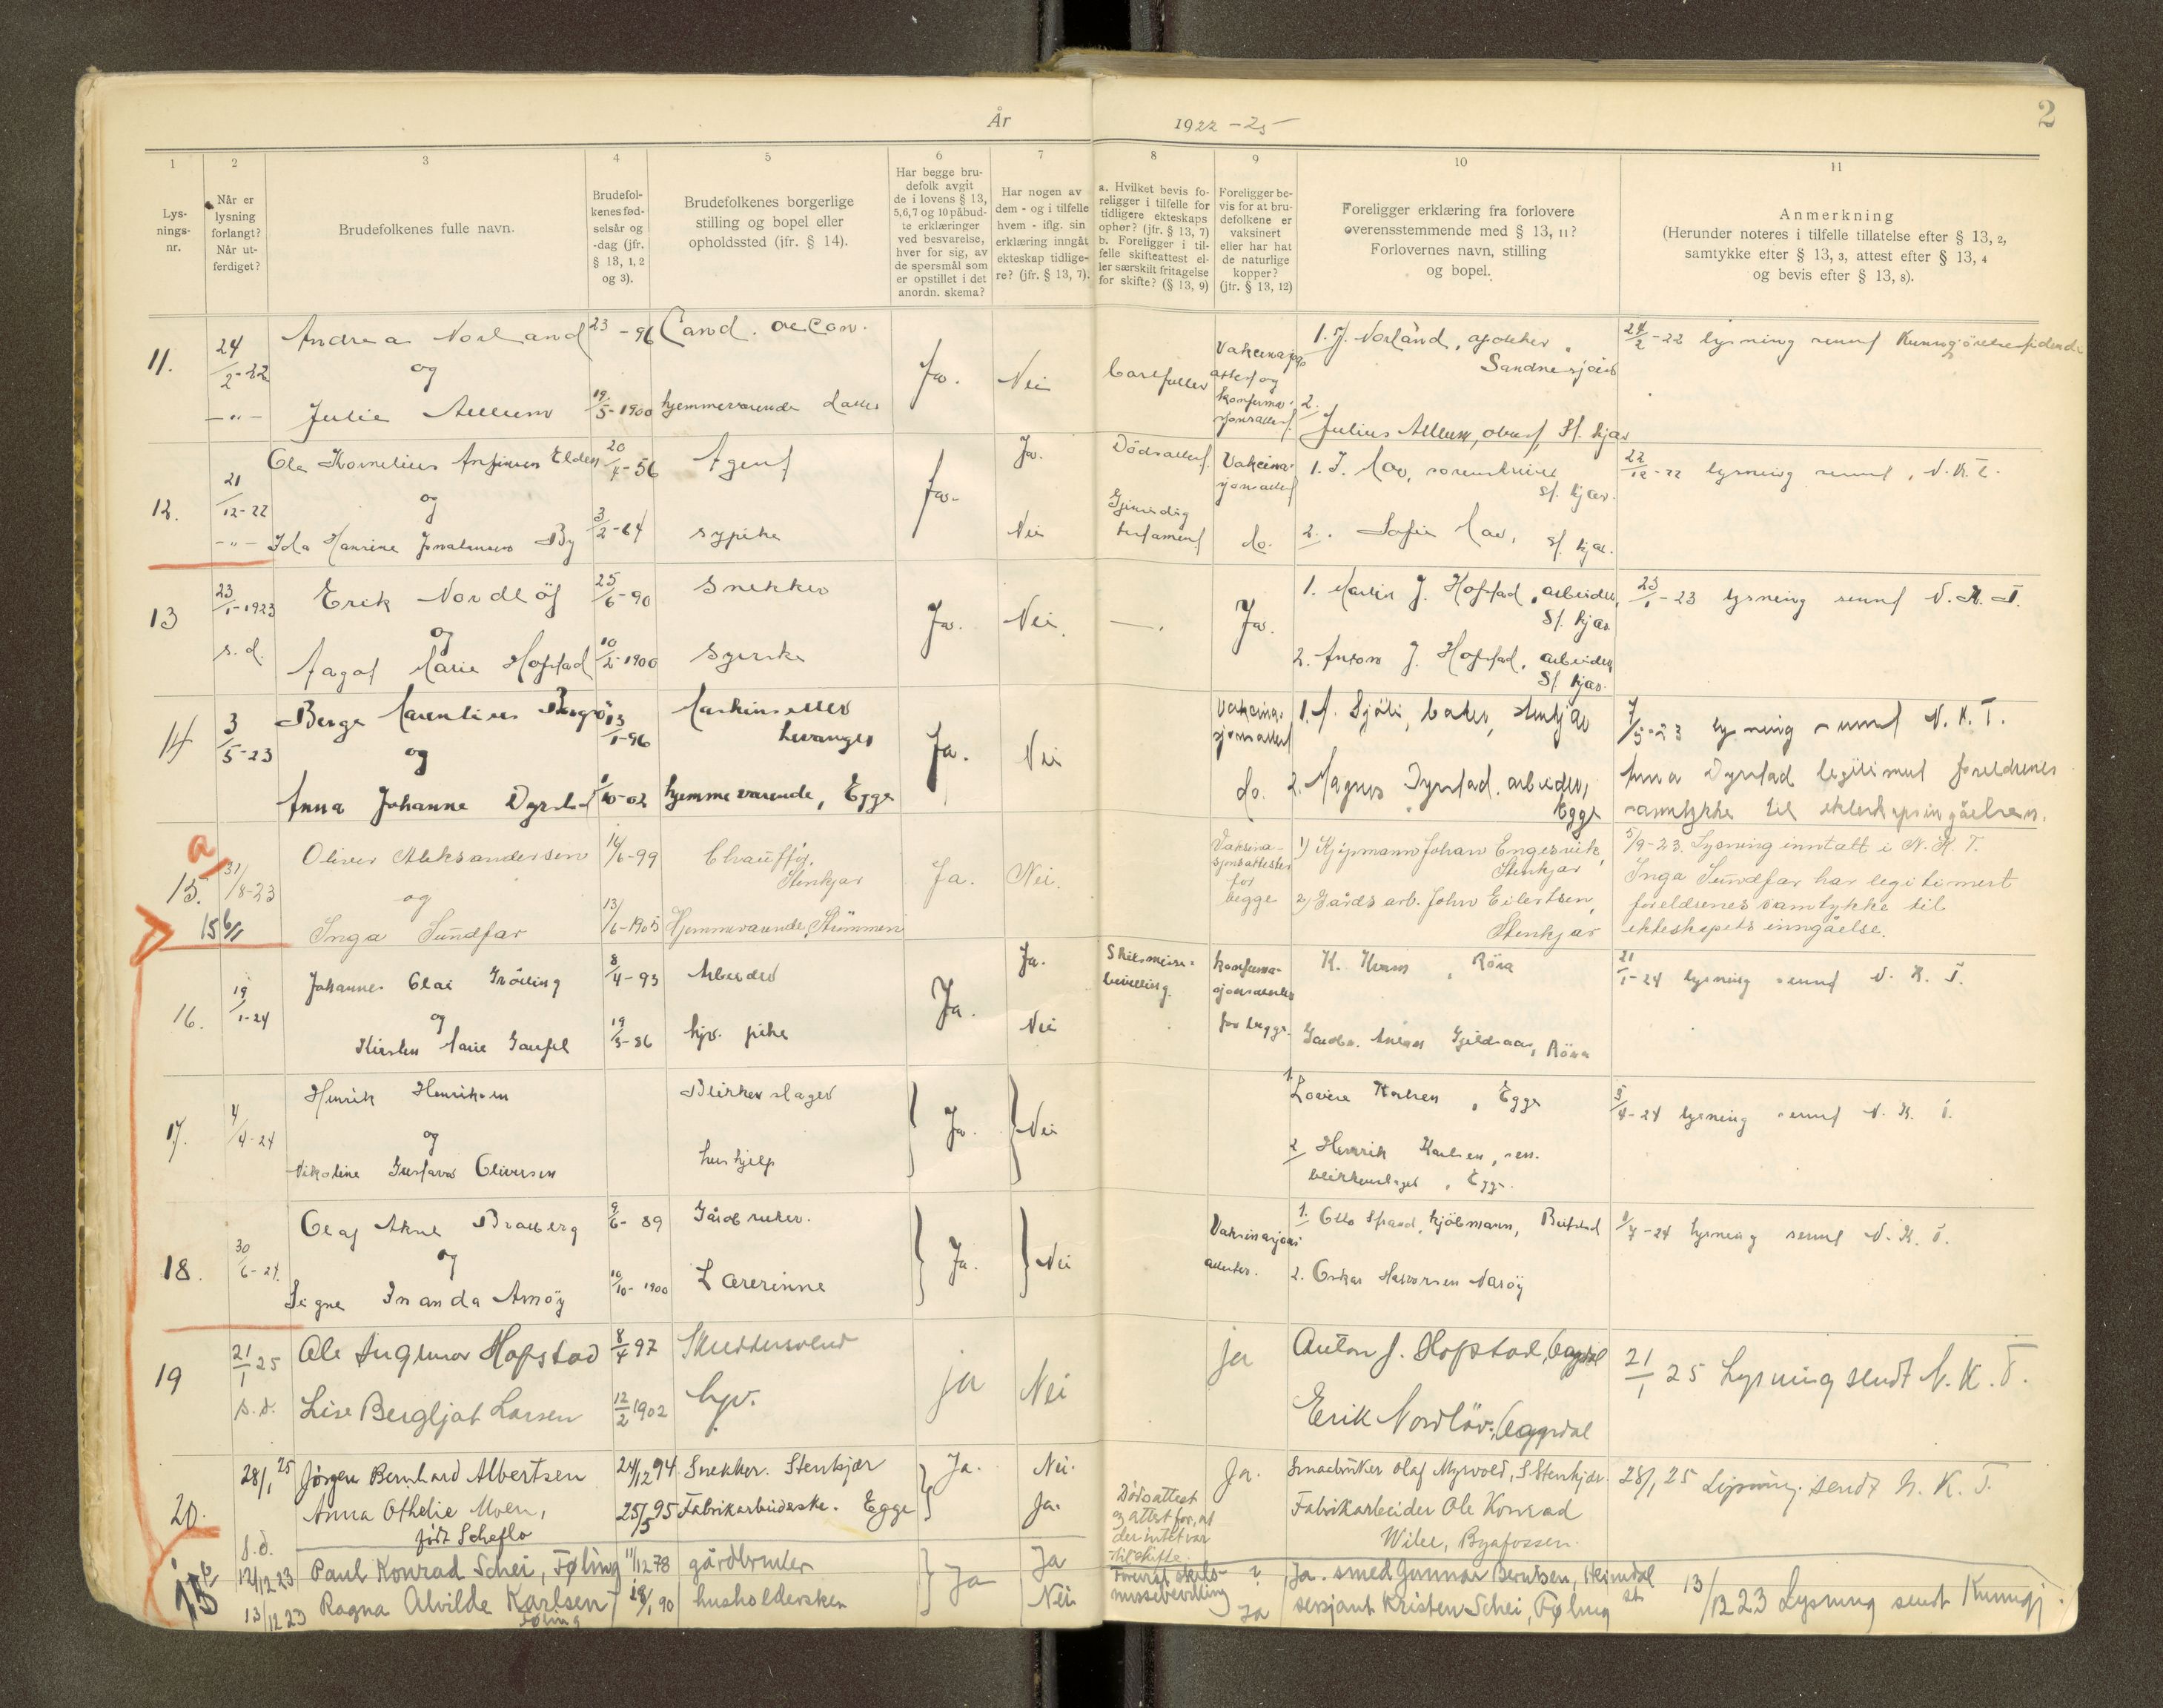 År 1922 - 25
2
1 2 3 4 5 6 7 8 9 10 11
Lys-
nings-
nr.
Når er
lysning
forlangt?
Når ut-
ferdiget?
Brudefolkenes fulle navn.
Brudefol-
kenes fød-
selsår og
-dag (jfr.
§ 13, 1, 2
og 3).
Brudefolkenes borgerlige
stilling og bopel eller
opholdssted (jfr. § 14).
Har begge bru-
defolk avgit
de i lovens § 13,
5,6,7 og 10 påbud-
te erklæringer
ved besvarelse,
hver for sig, av
de spørsmål som
er opstillet i det
anordn. skema?
Har nogen av
dem - og i tilfelle
hvem - iflg. sin
erklæring inngåt
ekteskap tidlige-
re? (jfr. § 13, 7).
a. Hvilket bevis fo-
religger i tilfelle for
tidligere ekteskaps
ophør? (jfr. § 13, 7)
b. Foreligger i til-
felle skifteattest el-
ler særskilt fritagelse
for skifte? (§ 13, 9)
Foreligger be-
vis for at bru-
defolkene er
vaksinert
eller har hat
de naturlige
kopper?
(jfr. § 13, 12)
Foreligger erklæring fra forlovere
overensstemmende med § 13, 11?
Forlovernes navn, stilling
og bopel.
Anmerkning
(Herunder noteres i tilfelle tillatelse efter § 13, 2,
samtykke efter § 13, 3, attest efter § 13, 4
og bevis efter § 13, 8).
11. 24/2-22 Andreas Norland 23 -96 Cand. oecon.
og
-"- Julie 19/5-1900 hjemmeværende datter
Ja. Nei bortfaller
attest og
1. J. Norland, apoteker,
Sandnesjøen
2.
Julius
24/2-22 lysning sennt Kunngjörelsestidende
12. 21/12-22 Ola Kornelius Elden 20/4-56 Agent
og
-"- Ida By 3/2-64 sypike
Ja. Ja. Nei
Dödsattest
Gjensidig
testament
Vaksina-
sjonsattest
do.
1. J.
St. kjær.
2. Sofie St. kjær.
22/12-22 lysning sennt N. K. T.
13 23/1-1923 Erik Nordlöf 25/6-90 Snekker
og
s. d. Aagot Marie Hofstad 10/2-1900 Syerske
Ja. Nei. —. Ja.
1. Martin J. Hofstad, arbeider,
St. kjær
2. Anton J. Hofstad, arbeider
St. kjær.
23/1-23 lysning sennt N. K. T.
14 3/5-23 Berge 13/1-96 Maskinsetter
Levanger
og
Anna Johanne Dyrstad /10-02 hjemmeværende, Egge
Ja. Nei
Vaksina-
sjonsattest
do.
1. A. Sjöli, baker, Stenkjær
2. Magnus Dyrstad. arbeider,
Egge
7/5-23 lysning sennt N. K. T.
Anna Dyrstad legitimert foreldrenes
samtykke til ekteskapsinngåelsen.
a
15. 31/8-23 Oliver Aleksandersen 14/6-99 Chauffør.
Stenkjær
og
15 b/ Inga Sundfær 13/6-1905 Hjemmeværende,
Ja. Nei.
Vaksina-
sjonsattester
for
begge
1) Kjøpmann Johan Engesvik,
Stenkjær
2) Gårds arb. John Eilertsen,
Stenkjær
5/9-23. Lysning inntatt i N. K. T.
Inga Sundfær har legitimert
foreldrenes samtykke til
ekteskapets inngåelse.
16. 19/1-24 Johannes Olai 8/4-93 Arbeider
og
Kirsten Marie 19/3-86 hjv. pike
Ja. Ja. Nei
Skilsmisse-
bevilling.
Konfirma-
sjonsattester
for begge.
K. , Röra
Gardbr. , Röra
21/1-24 lysning sennt N. K. T.
17. 4/4-24 Henrik Henriksen Blikkenslager
og
Nikoline Gustava Oliversen hushjelp
Ja. Nei
1. Lovise Karlsen, Egge
2. Henrik Karlsen, sen.
blikkenslager, Egge.
5/4-24 lysning sennt N. K. T.
18. 30/6-24. Olaf Braaberg 9/6- 89 Gårdbruker.
og
Signe Inanda Arnöy 10/10-1900 Lærerinne
Ja. Nei
Vaksinasjons
attester.
1. Otto Strand, kjöbmann, Beitstad
2. Oskar Halvorsen Naröy
1/7-24 lysning sennt N. K. T.
19 21/1 25 Ole Ingemar Hopstad 8/4 97 Skreddersvend
s. d. Lise Bergljot Larsen 12/2 1902 hjv.
ja Nei ja
Anton J. Hopstad,
Erik Nordlöv,
21/1 25 Lysning sendt N. K. T.
20. 28/1 25 Jörgen Bernhard Albertsen 24/12 94 Snekker. Stenkjær
Anna Othelie Moen, 25/5 95 Fabrikarbeiderske. Egge
s.d. født Scheflo
Ja. Nei. Ja.
Dödsattest
og attest for, at
der intet var
til skifte.
Ja.
Smaabruker Olaf Myrvold, S Stenkjær.
Fabrikarbeider Ole Konrad
Wiler, Byafossen.
28/1 25 Lysning sendt N. K. T.
15 b 12/12 23 Paul Konrad Schei, Følling 11/12 78 gårdbruker
13/12 23 Ragna Alvilde Karlsen 18/1 90 husholderske
Følling
Ja Ja Nei
Forevist skils-
missebevilling
? Ja
Ja. smed Gunnar Berntsen, Heimdal
st.
sersjant Kristen Schei, Følling
13/12 23 Lysning sendt Kunngj.